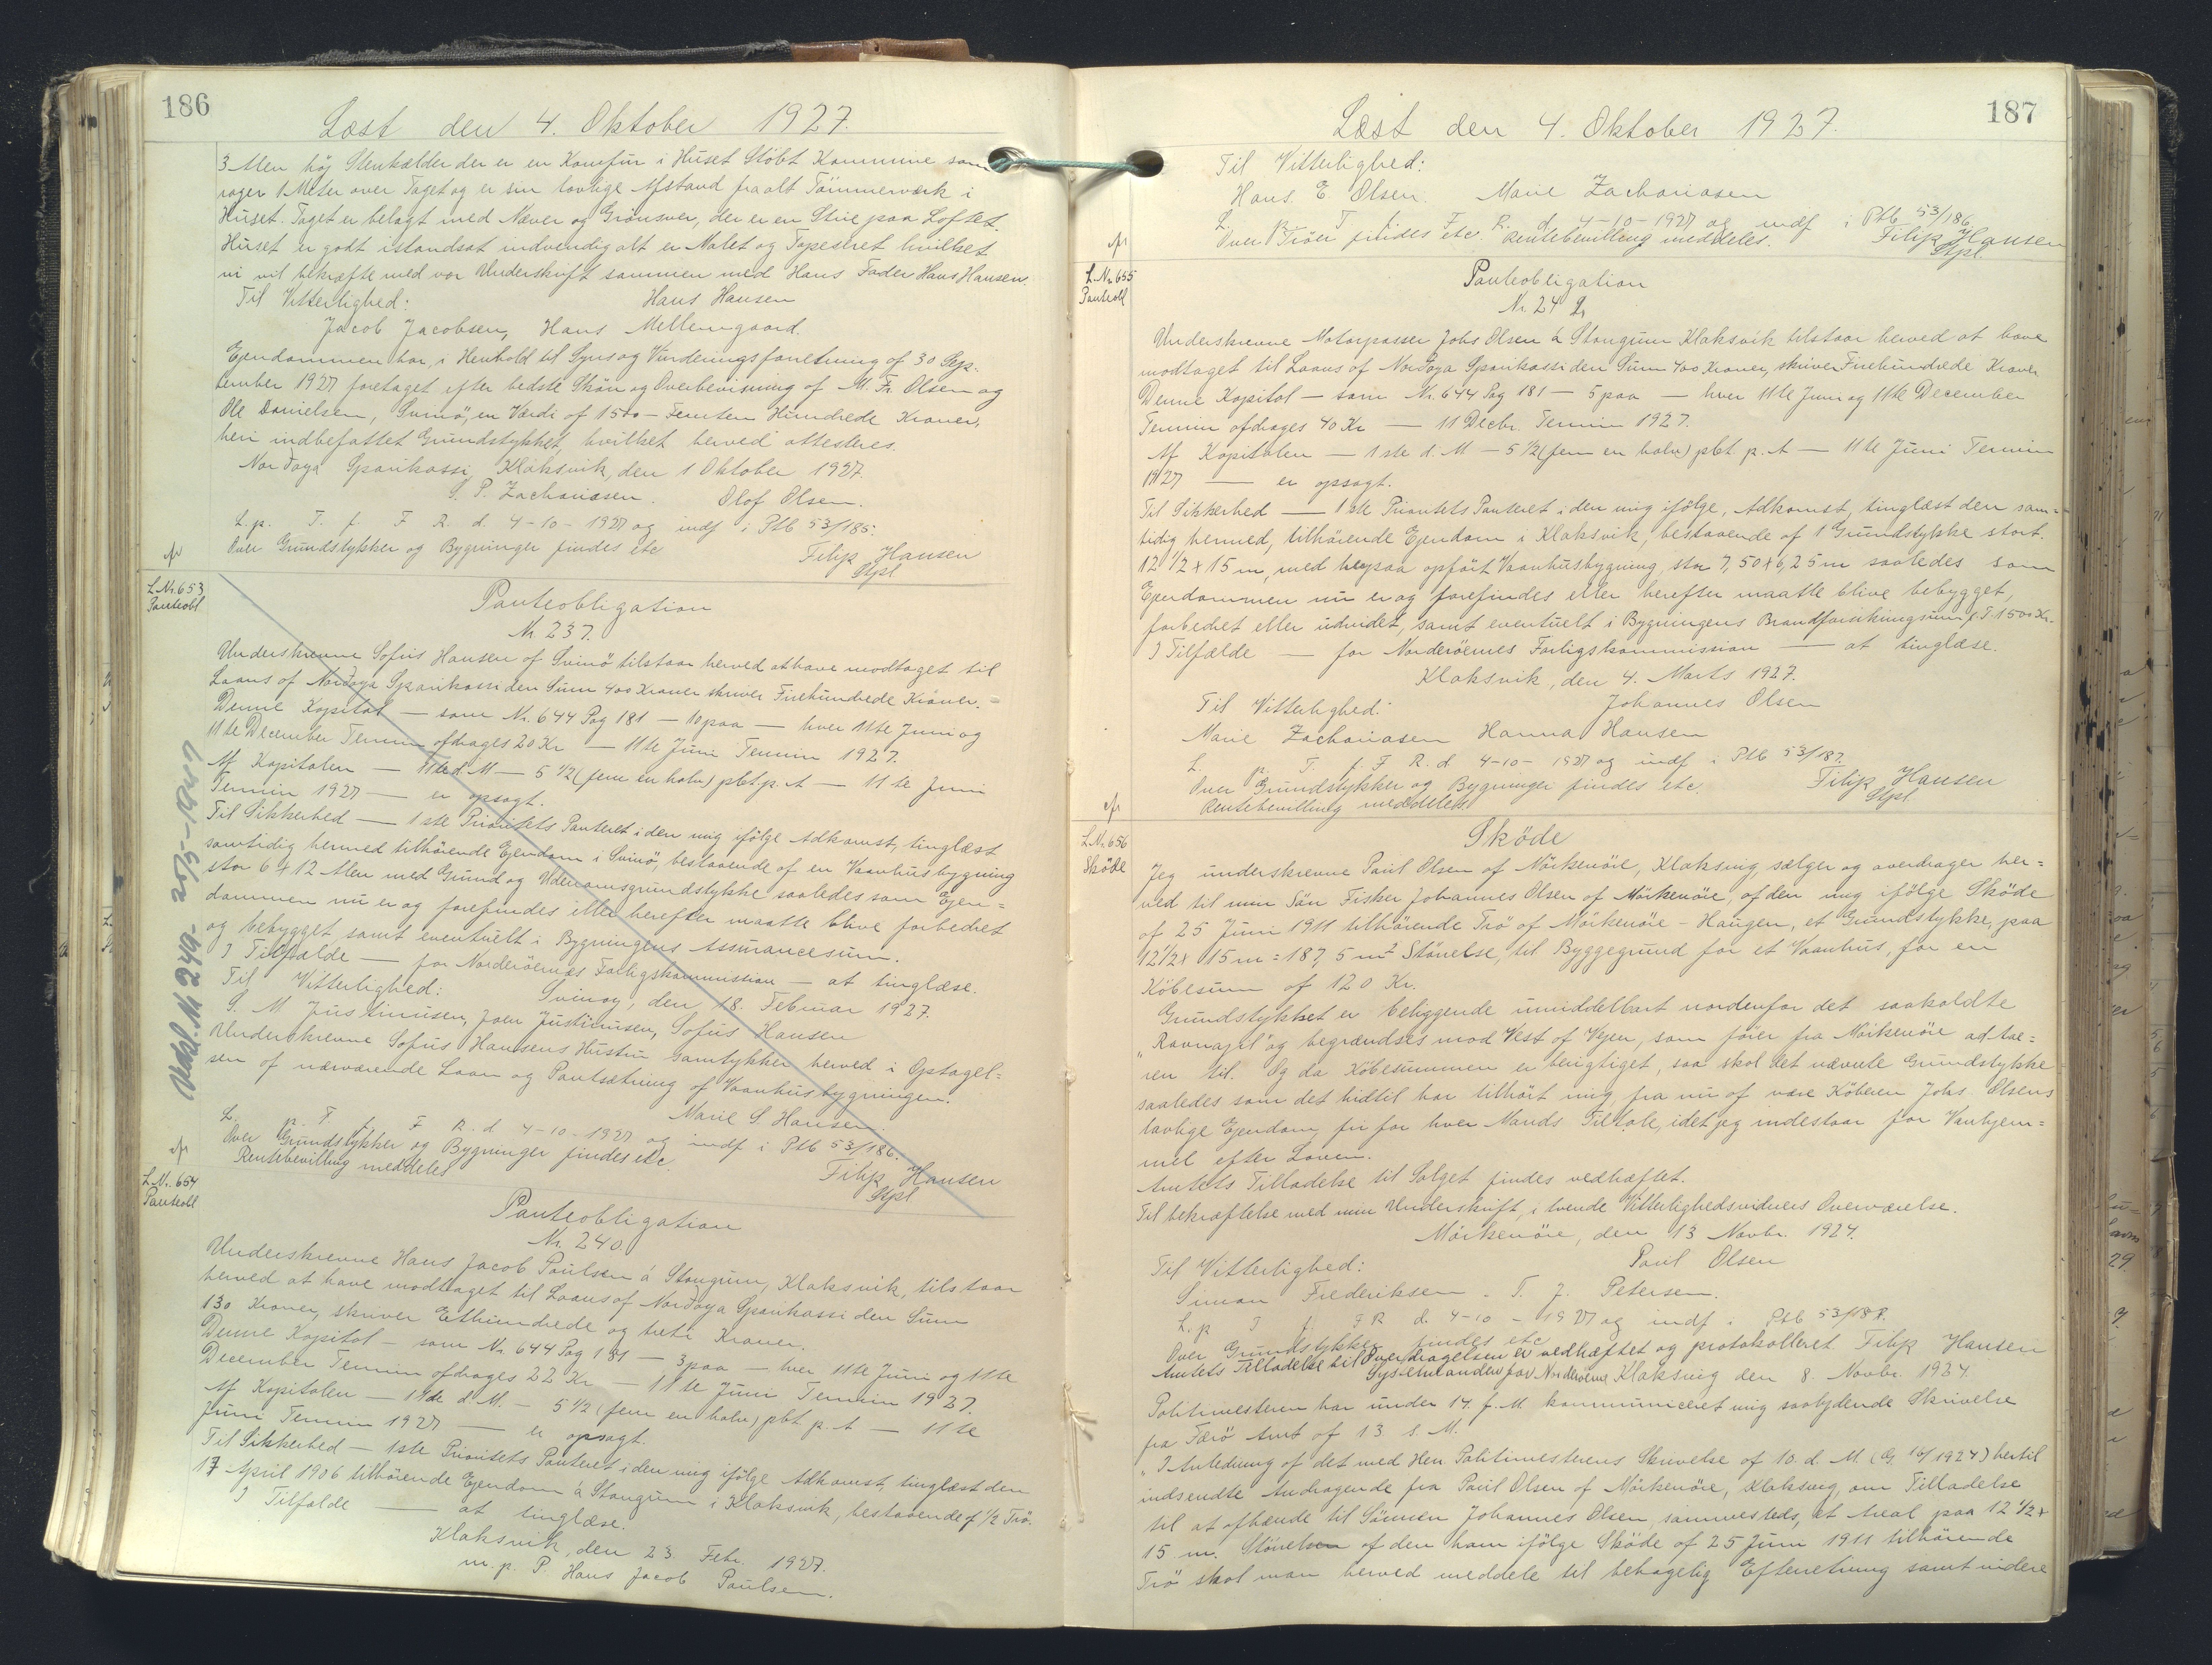 186
Læst den 4. Oktober 1927.
3 Alen høj Stenkælder der er en Komfur i Huset Støbt Kommine som
rager 1 Meter over Taget og er sin lovlige Afstand fra alt Tømmerværk i
Huset. Taget er belagt med Næver og Grönsver, der er en Stue paa Loftet.
Huset er godt istandsat indvendig alt er Malet og Tapeseret hvilket
vi vil bekræfte med vor Underskrift sammen med Hans Fader Hans Hansen.
Til Vitterlighed: Hans Hansen
Jacob Jacobsen, Hans Mellemgaard.
Ejendommen har, i Henhold til Syns og Vurderingsforretning af 30 Sep-
tember 1927 foretaget efter bedste Skön og Overbevisning af M. Fr. Olsen og
Ole Danielsen, Svinö, en Værdi af 1500 - Femten Hundrede Kroner,
heri indbefattet Grundstykket, hvilket herved attesteres.
Nordoya Sparikassi, Klaksvik, den 1 Oktober 1927.
S. P. Zachariasen. Olof Olsen.
L. p. T. f. F R. d. 4-10-1927 og indf i Ptb 53/185.
Over Grundstykker og Bygninger findes etc
Filip Hansen
Stpl
L.Nr. 653
Panteobl
Panteobligation
Nr 237.
Underskrevne Sofus Hansen af Svinö tilstaar herved at have modtaget til
Laans af Nordoya Sparikassi den Sum 400 Kroner skriver Firehundrede Kroner. =
Denne Kapital — som Nr. 644 Pag 181 — 10 paa — hver 11te Juni og
11te December Termin afdrages 20 Kr — 11te Juni Termin 1927.
Af Kapitalen — 11te d. M — 5 1/2 (fem en halv) pCt p. A — 11te Juni
Termin 1927 — er opsagt.
Til Sikkerhed — 1ste Prioritets Panteret i den mig ifölge Adkomst, tinglæst
samtidig hermed tilhörende Ejendom i Svinö, bestaaende af en Vaanhusbygning
stor 6 x 12 Alen med Grund og Udenomsgrundstykke saaledes som Ejen=
dommen nu er og forefindes eller herefter maatte blive forbedret
og bebygget samt eventuelt i Bygningens Assurancesum.
I Tilfælde — for Norderöernes Forligskommission — at tinglæse.
Til Vitterlighed: Svinoy, den 18. Februar 1927.
S. M Justinusen, Joen Justinusen, Sofus Hansen
Underskrevne Sofus Hansens Hustru samtykker herved i Optagel=
sen af nærværende Laan og Pantsætning af Vaanhusbygningen.
Marie S. Hansen.
L. p. T. f. F R. d 4-10-1927 og indf i Ptb 53/186.
Over Grundstykker og Bygninger findes etc.
Rentebevilling meddeles
Filip Hansen
Stpl
Udsl. Nr. 249-
L.Nr. 654
Panteobl
Panteobligation
Nr. 240
Underskrevne Hans Jacob Poulsen á Stongum, Klaksvik, tilstaar
herved at have modtaget til Laans af Nordoya Sparikassi den Sum
130 Kroner, skriver Ethundrede og treti Kroner.
Denne Kapital — som Nr. 644 Pag 181 — 3 paa — hver 11te Juni og 11te
December Termin afdrages 22 Kr — 11te Juni Termin 1927.
Af Kapitalen — 11te d. M. — 5 1/2 (fem en halv) pCt p. A — 11te
Juni Termin 1927 — er opsagt.
Til Sikkerhed — 1ste Prioritets Panteret i den mig ifölge Adkomst, tinglæst den
17 April 1906 tilhörende Ejendom á Stongum i Klaksvik, bestaaende af 1/2 Trö.
I Tilfælde — at tinglæse.
Klaksvik, den 23. Febr. 1927.
m. p. P. Hans Jacob Poulsen.
187
Læst den 4. Oktober 1927.
Til Vitterlighed:
Hans E Olsen. Marie Zachariasen
L. p. T f. F. R. d. 4-10-1927 og indf i Ptb 53/186
Over Tröer findes etc. Rentebevilling meddeles. Filip Hansen
Stpl
L.Nr. 655
Panteobl
Panteobligation
Nr. 242
Underskrevne Motorpasser Johs Olsen á Stongum Klaksvik tilstaar herved at have
modtaget til Laans af Nordoya Sparikassi den Sum 400 Kroner, skriver Firehundrede Kroner
Denne Kapital — som Nr. 644 Pag 181 — 5 paa — hver 11te Juni og 11te December
Termin afdrages 40 Kr — 11 Decbr. Termin 1927.
Af Kapitalen — 1ste d. M — 5 1/2 (fem en halv) pCt. p. A — 11te Juni Termin
1927 — er opsagt.
Til Sikkerhed — 1ste Prioritets Panteret i den mig ifölge, Adkomst, tinglæst den sam=
tidig hermed, tilhörende Ejendom i Klaksvik, bestaaende af 1 Grundstykke stort.
12 1/2 x 15 m, med herpaa opfört Vaanhusbygning, stor 7,50 x 6,25 m saaledes som
Ejendommen nu er og forefindes eller herefter maatte blive bebygget,
forbedret eller udvidet, samt eventuelt i Bygningens Brandforsikringssum f. T. 1500 Kr.
I Tilfælde — for Norderöernes Forligskommission — at tinglæse.
Klaksvik, den 4. Marts 1927.
Til Vitterlighed: Johannes Olsen
Marie Zachariasen Hanna Hansen
L. p. T. f. F R. d 4-10-1927 og indf i Ptb 53/187.
Over Grundstykker og Bygninger findes etc. Filip Hansen
Rentebevilling meddeles. Stpl.
L.Nr. 656
Sköde
Sköde
Jeg underskrevne Poul Olsen af Mörkenöre, Klaksvig, sælger og overdrager her=
ved til min Sön Fisker Johannes Olsen af Mörkenöre, af den mig ifölge Sköde
af 25 Juni 1911 tilhörende Trö af Mörkenöre - Haugen, et Grundstykke, paa
12 1/2 x 15 m = 187,5 m2 Störrelse, til Byggegrund for et Vaanhus, for en
Köbesum af 120 Kr.
Grundstykket er beliggende umiddelbart nordenfor det saakaldte
"Ravnagil" og begrændses mod Vest af Vejen, som förer fra Mörkenöre ad
ren til. Og da Köbesummen er berigtiget, saa skal det nævnte Grundstykke
saaledes som det hidtil har tilhört mig, fra nu af være Köberen Johs Olsens
lovlige Ejendom fri for hver Mands Tiltale, idet jeg indestaar for Vanhjem=
mel efter Loven.
Amtets Tilladelse til Salget findes vedhæftet.
Til bekræftelse med min Underskrift, i tvende Vitterlighedsvidners Overværelse.
Mörkenöre, den 13 Novbr. 1924.
Til Vitterlighed: Poul Olsen
Simon Frederiksen. T. J. Petersen.
L. p T f. F R d. 4-10-1927 og indf i Ptb 53/187.
Over Grundstykker findes etc
Amtets Tilladelse til Overdragelsen er vedhæftet og protokolleret. Filip Hansen
Sysselmanden for Norderöerne Klaksvig den 8. Novbr. 1924.
Politimesteren har under 14. f. M kommuniceret mig saalydende Skrivelse
fra Færö Amt af 13. s. M.
"I Anledning af det med Herr Politimesterens Skrivelse af 10. d. M. (G. 16/1924) hertil
indsendte Andragende fra Poul Olsen af Mörkenöre, Klaksvig, om Tilladelse
til at afhænde til Sönnen Johannes Olsen, sammesteds, et Areal paa 12 1/2 x
15 m. Störrelsen af den ham ifölge Sköde af 25 Juni 1911 tilhörende
Trö skal man herved meddele til behagelig Efterretning samt videre